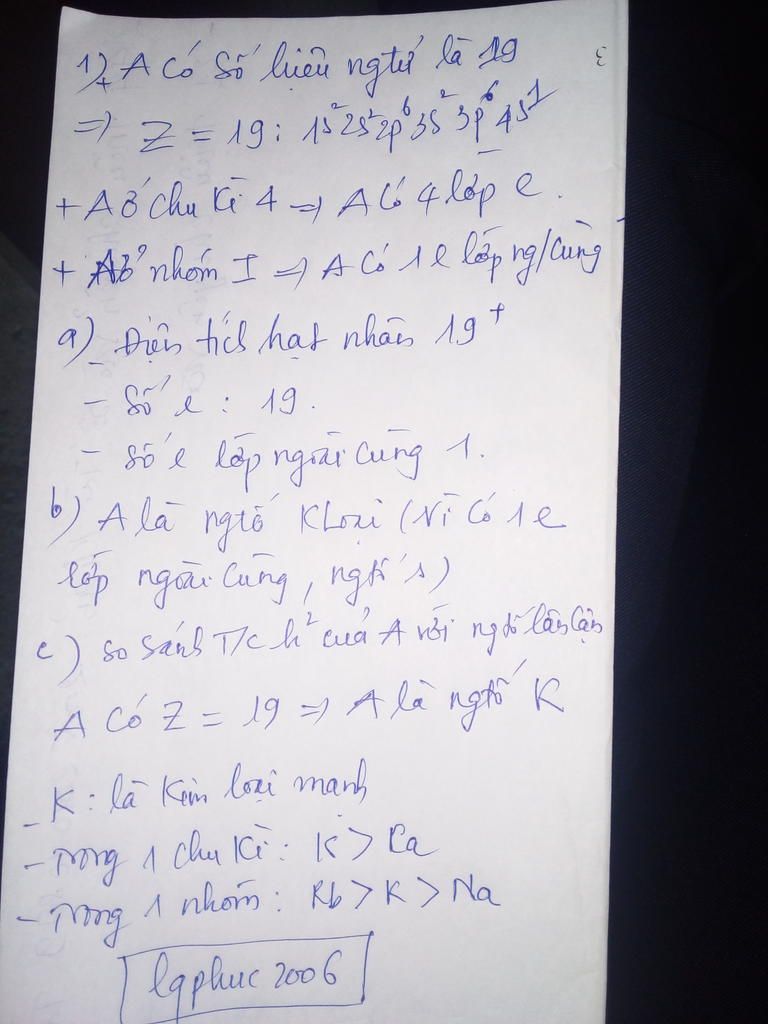 1) + A có số hiệu ngtử là 19
=> Z = 19: 1s²2s²2p⁶3s²3p⁶4s¹
+ A ở chu kì 4 => A có 4 lớp e.
+ A ở nhóm I => A có 1e lớp ng/cùng
a) - Điện tích hạt nhân 19⁺
- Số e : 19.
- số e lớp ngoài cùng 1.
b) A là ngtố KLoại (vì có 1e
lớp ngoài cùng, ngtố s)
c) so sánh T/c h² của A với ngtố lân cận
A có Z = 19 => A là ngtố K
- K: là Kim loại mạnh
- Trong 1 chu Kì: K > Ca
- Trong 1 nhóm: Rb > K > Na
lqphuc 2006